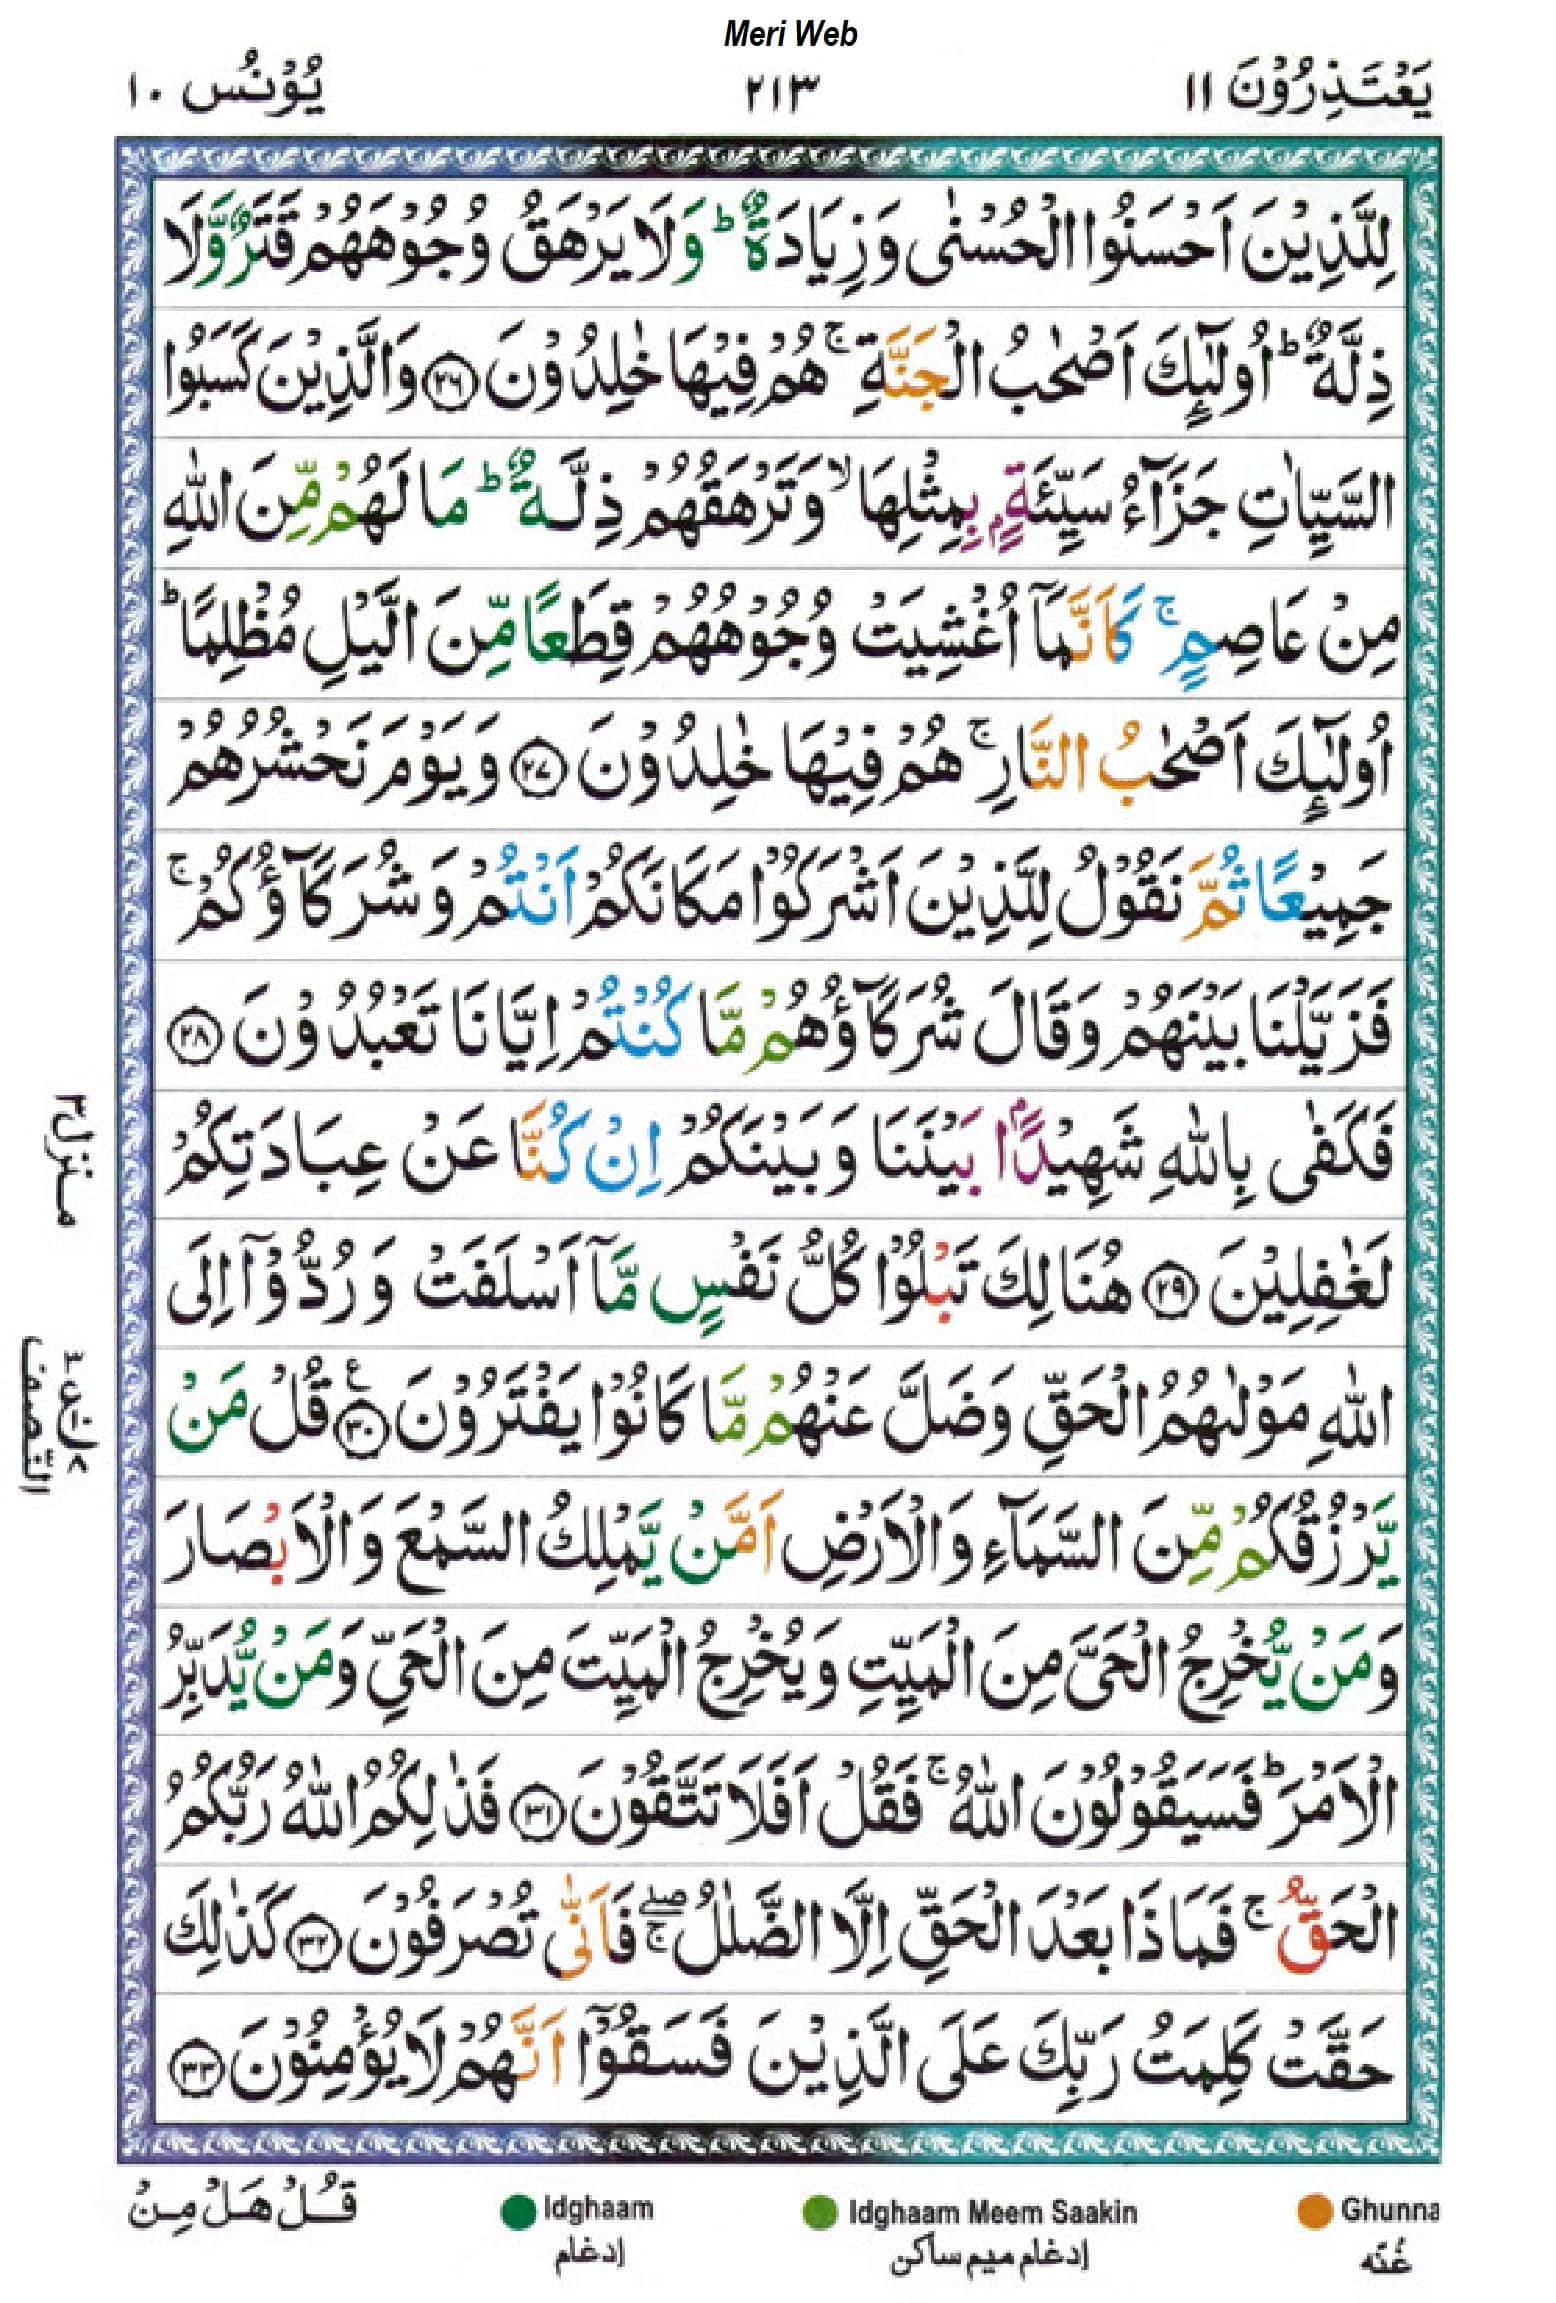 Meri Web
يَعْتَذِرُوْنَ ١١
٢١٣
يُوْنُس ١٠
لِلَّذِيْنَ اَحْسَنُوا الْحُسْنٰى وَزِيَادَةٌ ؕ وَلَا يَرْهَقُ وُجُوْهَهُمْ قَتَرٌ وَّلَا
ذِلَّةٌ ؕ اُولٰٓئِكَ اَصْحٰبُ الْجَنَّةِ ۚ هُمْ فِيْهَا خٰلِدُوْنَ ﴿۲۶﴾ وَالَّذِيْنَ كَسَبُوا
السَّيِّاٰتِ جَزَآءُ سَيِّئَةٍۭ بِمِثْلِهَا ۙ وَتَرْهَقُهُمْ ذِلَّةٌ ؕ مَا لَهُمْ مِّنَ اللّٰهِ
مِنْ عَاصِمٍ ۚ كَاَنَّمَآ اُغْشِيَتْ وُجُوْهُهُمْ قِطَعًا مِّنَ الَّيْلِ مُظْلِمًا ؕ
اُولٰٓئِكَ اَصْحٰبُ النَّارِ ۚ هُمْ فِيْهَا خٰلِدُوْنَ ﴿۲۷﴾ وَيَوْمَ نَحْشُرُهُمْ
جَمِيْعًا ثُمَّ نَقُوْلُ لِلَّذِيْنَ اَشْرَكُوْا مَكَانَكُمْ اَنْتُمْ وَشُرَكَآؤُكُمْ ۚ
فَزَيَّلْنَا بَيْنَهُمْ وَقَالَ شُرَكَآؤُهُمْ مَّا كُنْتُمْ اِيَّانَا تَعْبُدُوْنَ ﴿۲۸﴾
فَكَفٰى بِاللّٰهِ شَهِيْدًۢا بَيْنَنَا وَبَيْنَكُمْ اِنْ كُنَّا عَنْ عِبَادَتِكُمْ
لَغٰفِلِيْنَ ﴿۲۹﴾ هُنَالِكَ تَبْلُوْا كُلُّ نَفْسٍ مَّآ اَسْلَفَتْ وَرُدُّوْٓا اِلَى
اللّٰهِ مَوْلٰىهُمُ الْحَقِّ وَضَلَّ عَنْهُمْ مَّا كَانُوْا يَفْتَرُوْنَ ﴿۳۰﴾ ع قُلْ مَنْ
يَّرْزُقُكُمْ مِّنَ السَّمَآءِ وَالْاَرْضِ اَمَّنْ يَّمْلِكُ السَّمْعَ وَالْاَبْصَارَ
وَمَنْ يُّخْرِجُ الْحَيَّ مِنَ الْمَيِّتِ وَيُخْرِجُ الْمَيِّتَ مِنَ الْحَيِّ وَمَنْ يُّدَبِّرُ
الْاَمْرَ ؕ فَسَيَقُوْلُوْنَ اللّٰهُ ۚ فَقُلْ اَفَلَا تَتَّقُوْنَ ﴿۳۱﴾ فَذٰلِكُمُ اللّٰهُ رَبُّكُمُ
الْحَقُّ ۚ فَمَاذَا بَعْدَ الْحَقِّ اِلَّا الضَّلٰلُ ۖۚ فَاَنّٰى تُصْرَفُوْنَ ﴿۳۲﴾ كَذٰلِكَ
حَقَّتْ كَلِمَتُ رَبِّكَ عَلَى الَّذِيْنَ فَسَقُوْٓا اَنَّهُمْ لَا يُؤْمِنُوْنَ ﴿۳۳﴾
منزل ٣
النّصف
قُلْ هَلْ مِنْ
Idghaam
إدغام
Idghaam Meem Saakin
إدغام ميم ساكن
Ghunna
غُنّه